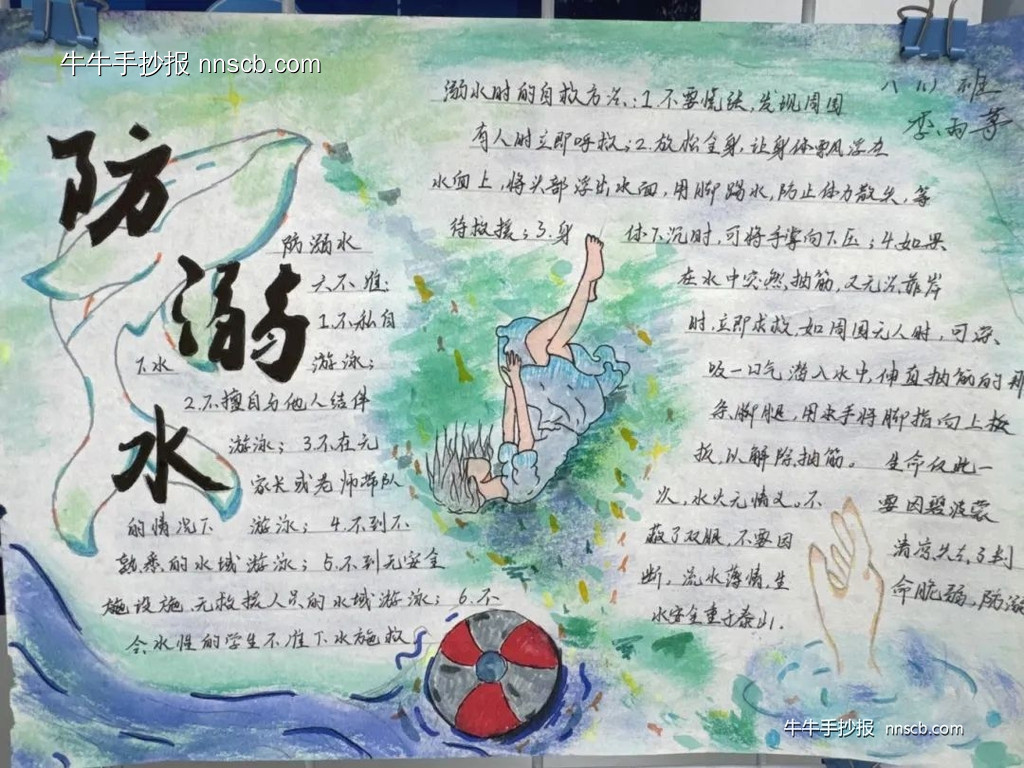 牛牛手抄报 nnscb.com
防溺水
八(1)班
李雨
溺水时的自救方法:1.不要慌张,发现周围
有人时立即呼救;2.放松全身,让身体飘浮在
水面上,将头部浮出水面,用脚踢水,防止体力散失,等
待救援;3.身 体下沉时,可将手掌向下压;4.如果
在水中突然抽筋,又无法靠岸
时,立即求救,如周围无人时,可深
吸一口气潜入水中,伸直抽筋的那
条脚腿,用手将脚指向上扳
扳,以解除抽筋。 生命仅此一
次,水火无情义。不 要因碧波蒙
蔽了双眼,不要因 清凉失去了判
断,流水薄情,生 命脆弱,防溺
水安全重于泰山.
防溺水
六不准:
1.不私自
下水 游泳;
2.不擅自与他人结伴
游泳;3.不在无
家长或老师带队
的情况下 游泳;4.不到不
熟悉的水域游泳;5.不到无安全
施设施、无救援人员的水域游泳;6.不
会水性的学生不准下水施救
牛牛手抄报 nnscb.com